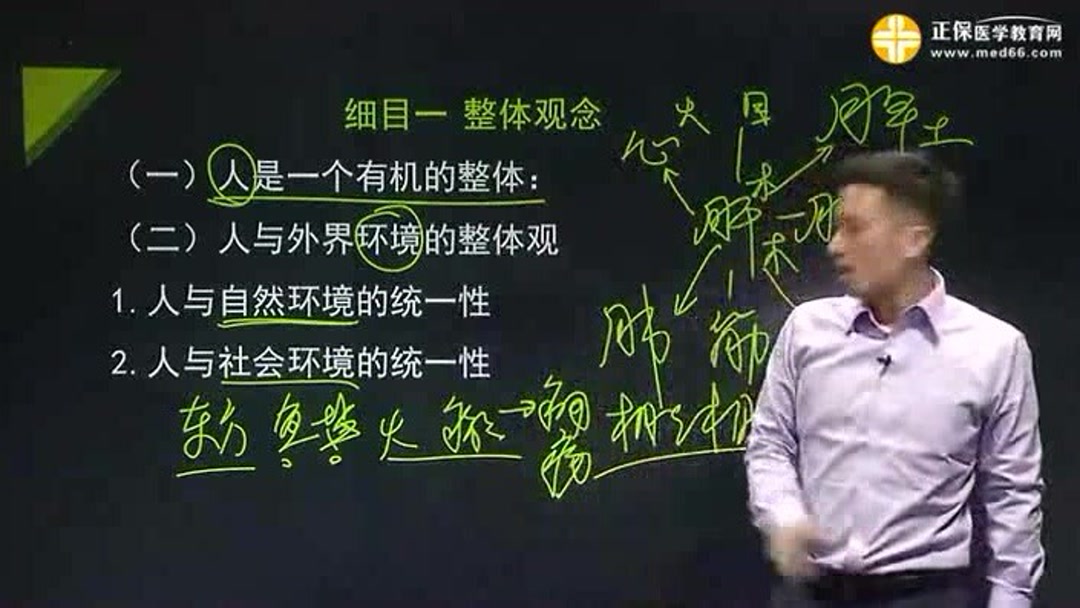 正保医学教育网
www.med66.com
细目一 整体观念
（一）人是一个有机的整体：
（二）人与外界环境的整体观
1.人与自然环境的统一性
2.人与社会环境的统一性
火
心
脾土
肝木
木
肺
筋
东方
火